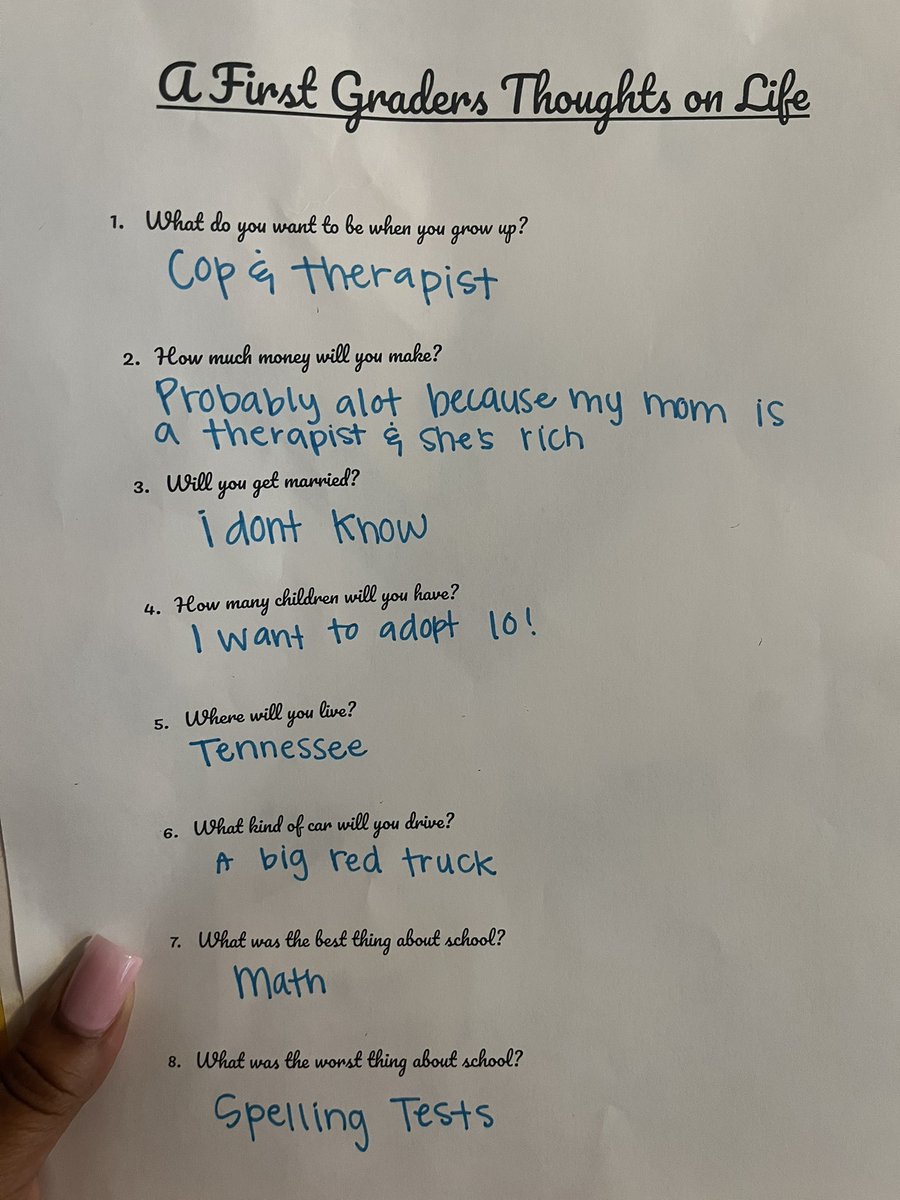 A First Graders Thoughts on Life
1. What do you want to be when you grow up?
Cop & therapist
2. How much money will you make?
Probably alot because my mom is
a therapist & she's rich
3. Will you get married?
i dont know
4. How many children will you have?
I want to adopt 10!
5. Where will you live?
Tennessee
6. What kind of car will you drive?
A big red truck
7. What was the best thing about school?
Math
8. What was the worst thing about school?
Spelling Tests